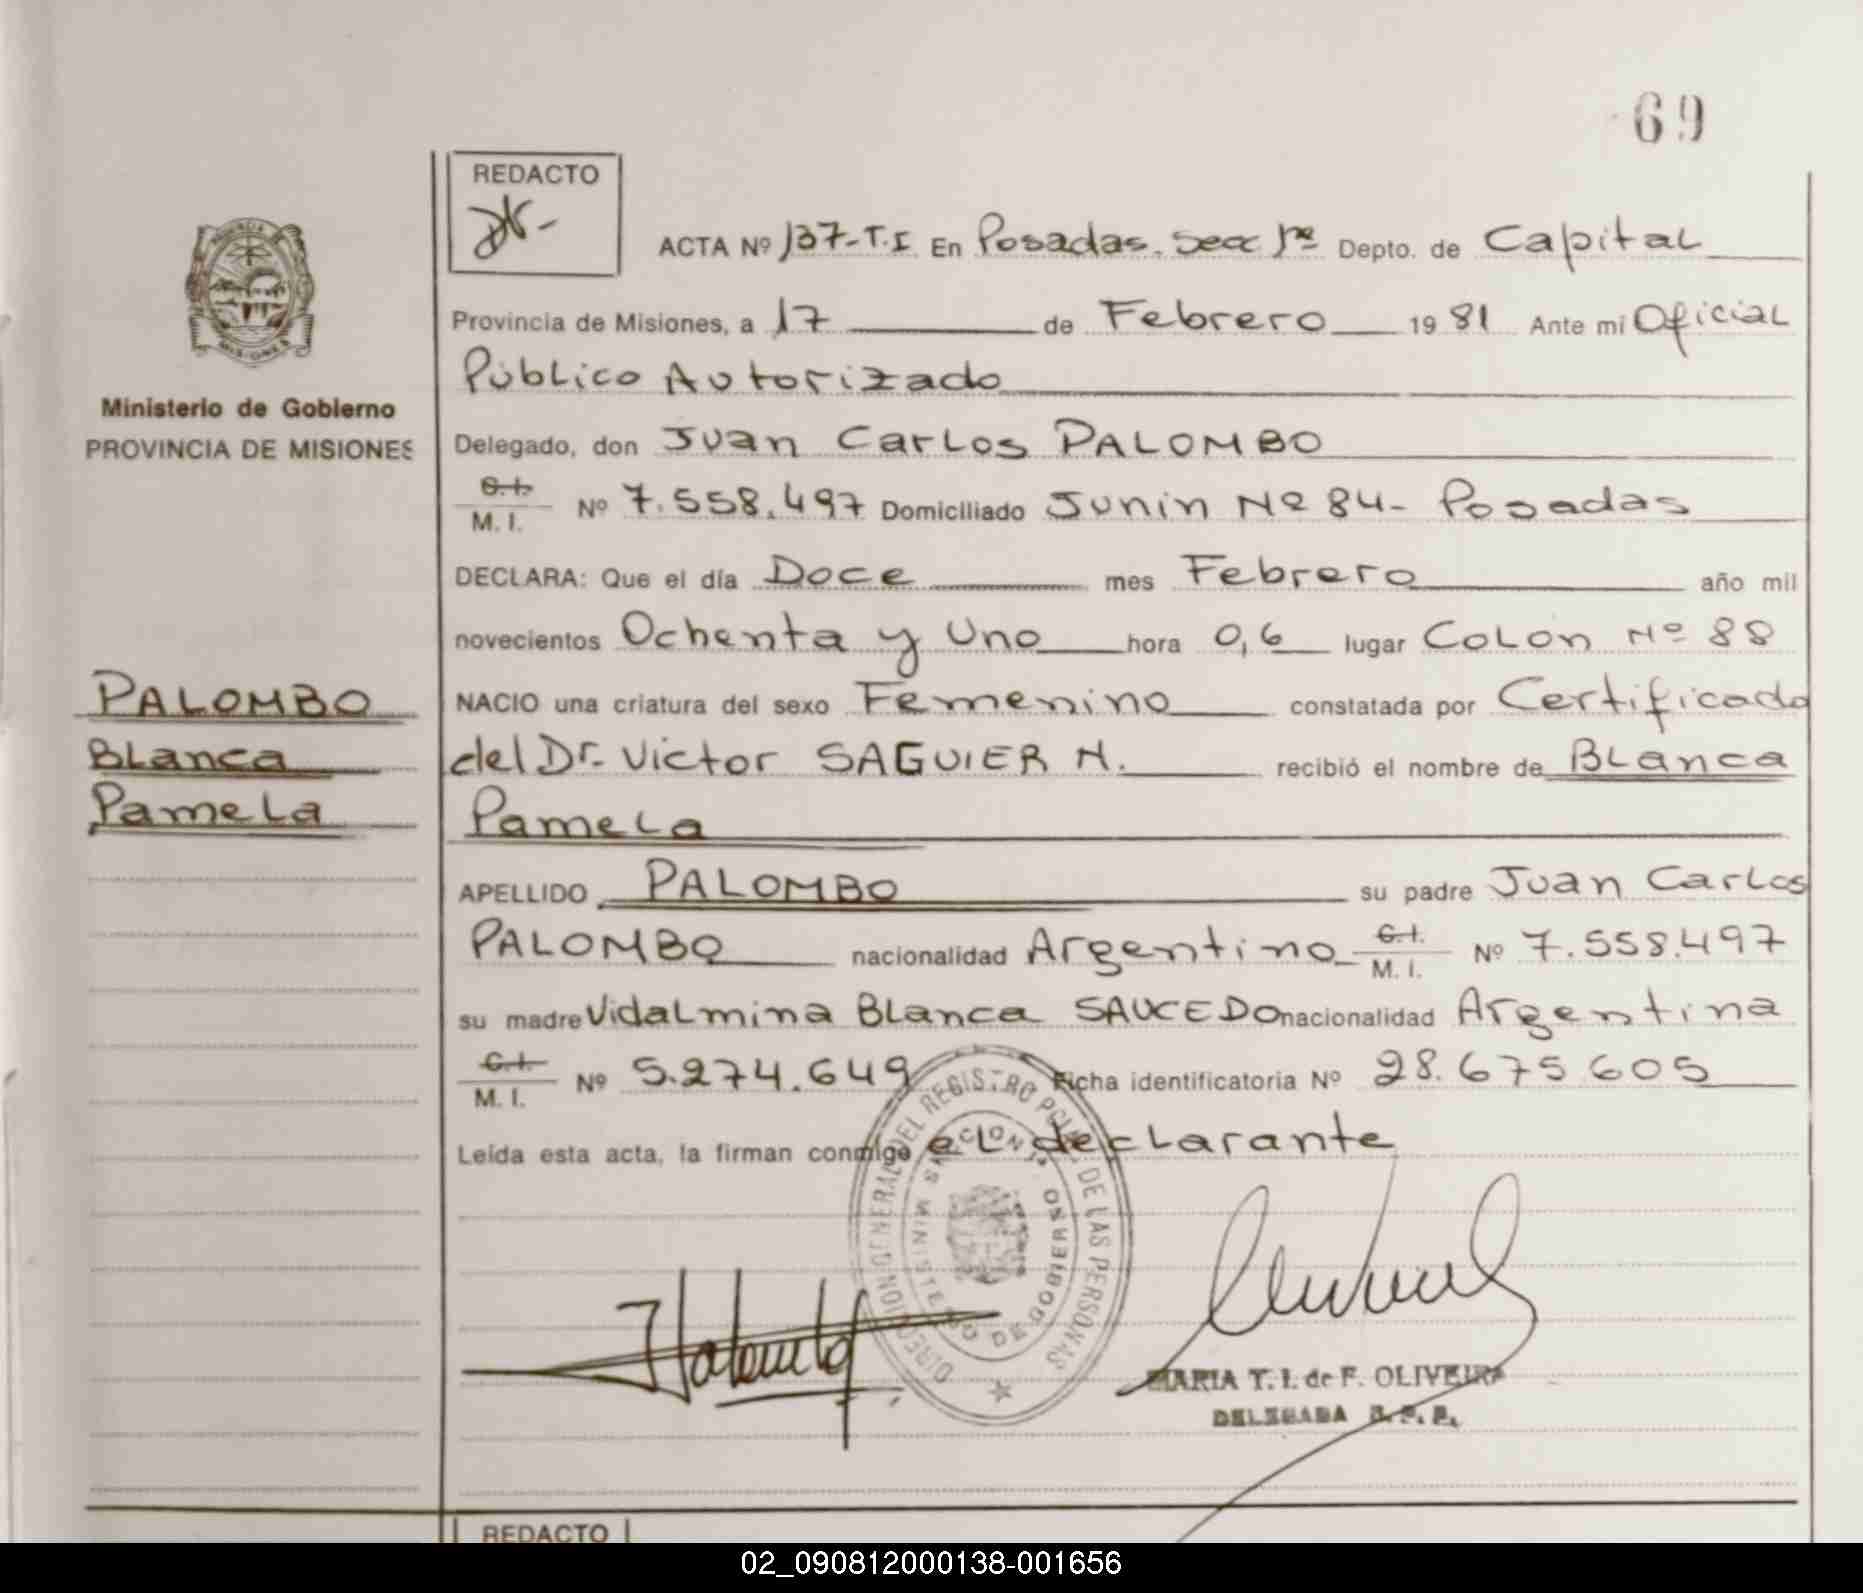 69
REDACTO
ACTA Nº 137-T.I En Posadas. Secc 1ra Depto. de Capital
Provincia de Misiones, a 17 de Febrero 19 81 Ante mi Oficial
Público Autorizado
Ministerio de Gobierno
PROVINCIA DE MISIONES
Delegado, don Juan Carlos PALOMBO
C.I.
M. I. Nº 7.558.497 Domiciliado Junin Nº 84- Posadas
DECLARA: Que el día Doce mes Febrero año mil
novecientos Ochenta y Uno hora 0,6 lugar Colon Nº 88
PALOMBO
Blanca
Pamela
NACIO una criatura del sexo Femenino constatada por Certificado
del Dr. Victor SAGUIER N. recibió el nombre de Blanca
Pamela
APELLIDO PALOMBO su padre Juan Carlos
PALOMBO nacionalidad Argentino C.I. M. I. Nº 7.558.497
su madre Vidalmina Blanca SAUCEDO nacionalidad Argentina
C.I.
M. I. Nº 5.274.649 Ficha identificatoria Nº 28.675.605
Leída esta acta, la firman conmigo el declarante
DIRECCION GENERAL DEL REGISTRO PCIAL. DE LAS PERSONAS
MINISTERIO DE GOBIERNO
MARIA T. I. de F. OLIVEIRA
DELEGADA R. P. P.
REDACTO
02_090812000138-001656